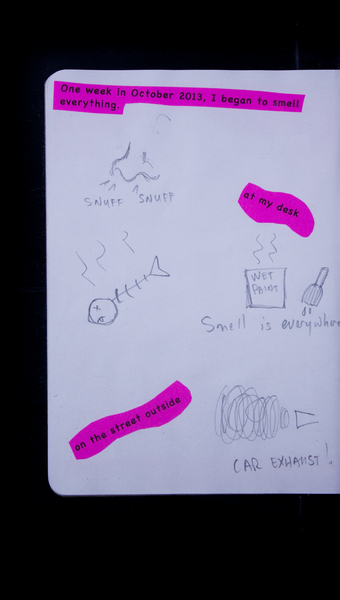 One week in October 2013, I began to smell
everything.
SNUFF SNUFF
at my desk
WET
PAINT
Smell is everywhere
on the street outside
CAR EXHAUST!